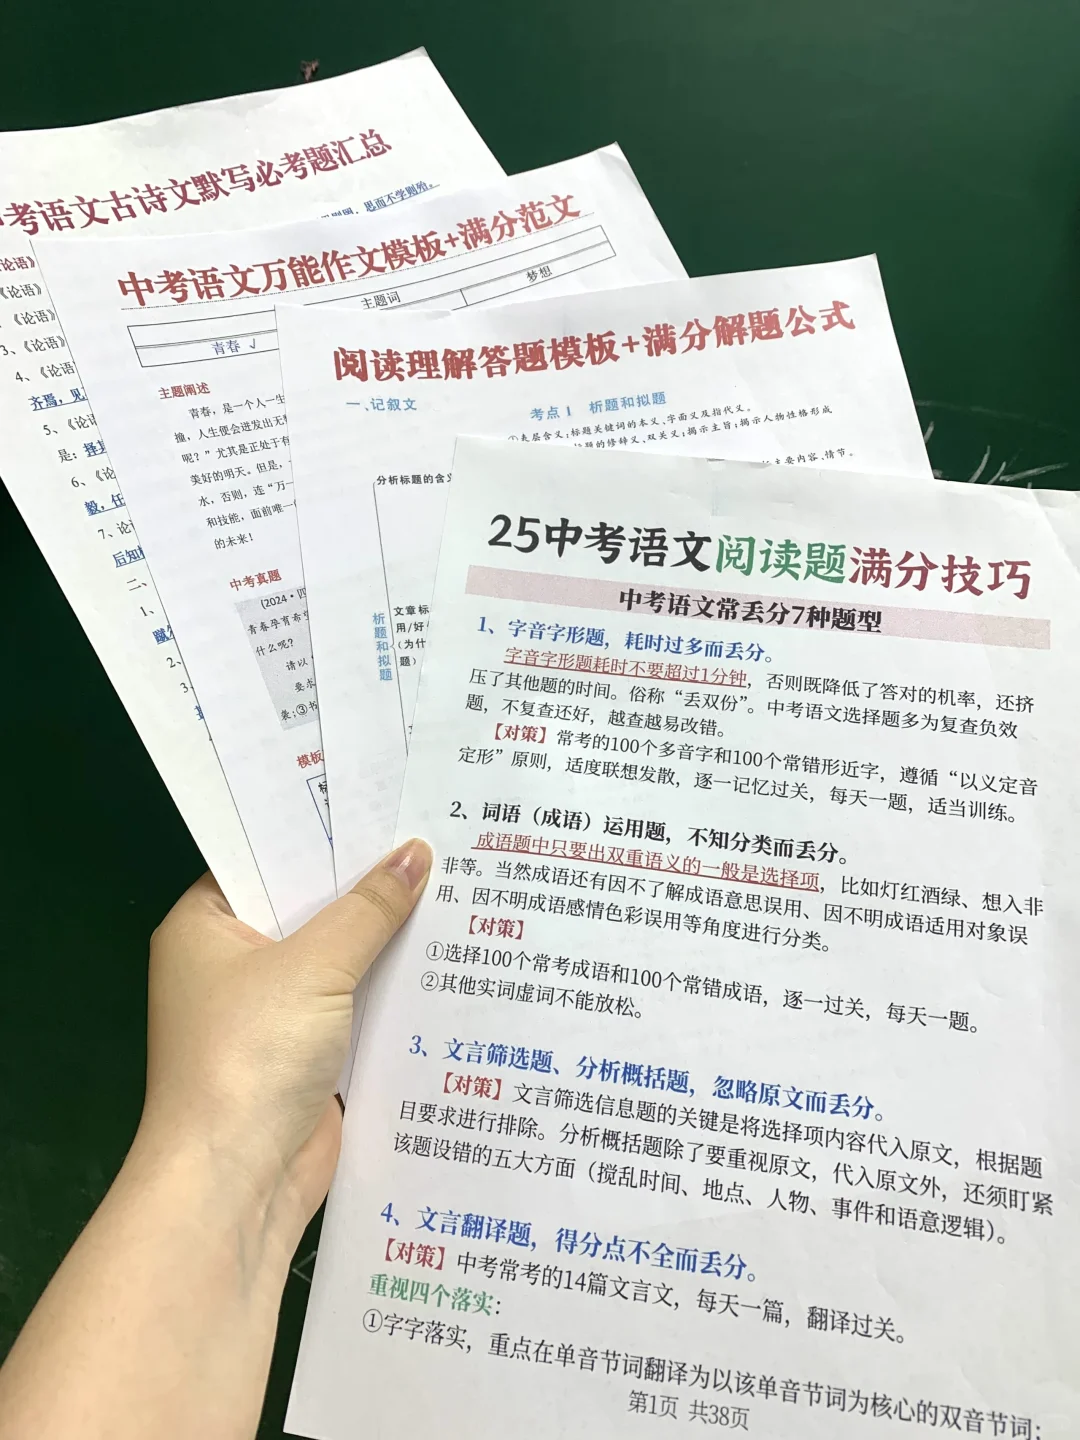 中考语文古诗文默写必考题汇总
思而不学则殆。
《论语》
《论语》
《论语》
3、《论语》
4、《论语
齐焉，见
5、《论语
是：择其
6、《论
毅，任
7、论
后知
二、
1、
2、
3、
中考语文万能作文模板+满分范文
主题词
梦想
青春 √
主题阐述
青春，是一个人一生
撞，人生便会迸发出无
呢？”尤其是正处于有
美好的明天。但是，
水，否则，连“万一
和技能，面前唯一
的未来！
中考真题
(2024·四
青春孕育希望
什么呢？
请以
要求
象;③书
模板
阅读理解答题模板+满分解题公式
一、记叙文
考点1 析题和拟题
①表层含义:标题关键词的本义、字面义及指代义。
题的修辞义、双关义;揭示主旨;揭示人物性格形成
主要内容、情节。
分析标题的含义
析题和拟题
文章标
用/好
(为什
题)
25中考语文阅读题满分技巧
中考语文常丢分7种题型
1、字音字形题，耗时过多而丢分。
字音字形题耗时不要超过1分钟，否则既降低了答对的机率，还挤
压了其他题的时间。俗称“丢双份”。中考语文选择题多为复查负效
题，不复查还好，越查越易改错。
【对策】常考的100个多音字和100个常错形近字，遵循“以义定音
定形”原则，适度联想发散，逐一记忆过关，每天一题，适当训练。
2、词语（成语）运用题，不知分类而丢分。
成语题中只要出双重语义的一般是选择项，比如灯红酒绿、想入非
非等。当然成语还有因不了解成语意思误用、因不明成语适用对象误
用、因不明成语感情色彩误用等角度进行分类。
【对策】
①选择100个常考成语和100个常错成语，逐一过关，每天一题。
②其他实词虚词不能放松。
3、文言筛选题、分析概括题，忽略原文而丢分。
【对策】文言筛选信息题的关键是将选择项内容代入原文，根据题
目要求进行排除。分析概括题除了要重视原文，代入原文外，还须盯紧
该题设错的五大方面（搅乱时间、地点、人物、事件和语意逻辑）。
4、文言翻译题，得分点不全而丢分。
【对策】中考常考的14篇文言文，每天一篇，翻译过关。
重视四个落实：
①字字落实，重点在单音节词翻译为以该单音节词为核心的双音节词；
第1页 共38页